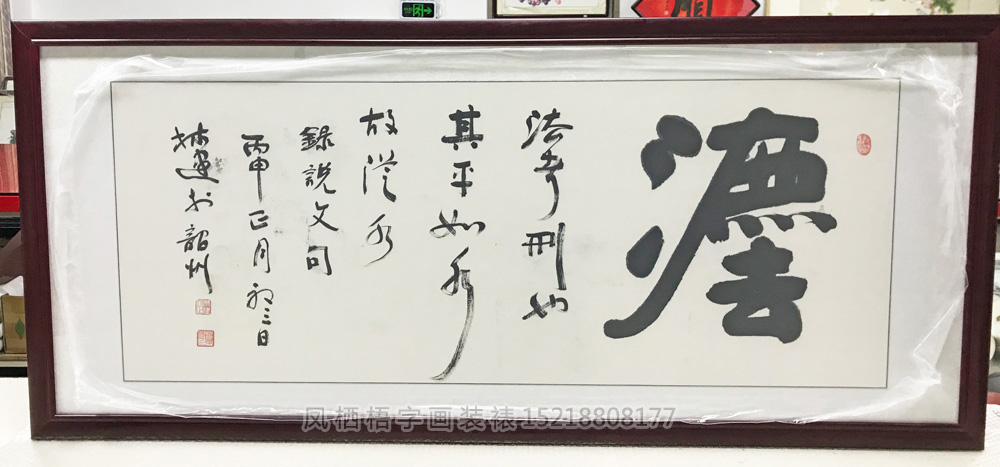 灋
法者刑也
其平如水
故從水
錄說文句
丙申正月初三日
於韶州
凤栖梧字画装裱15218808177